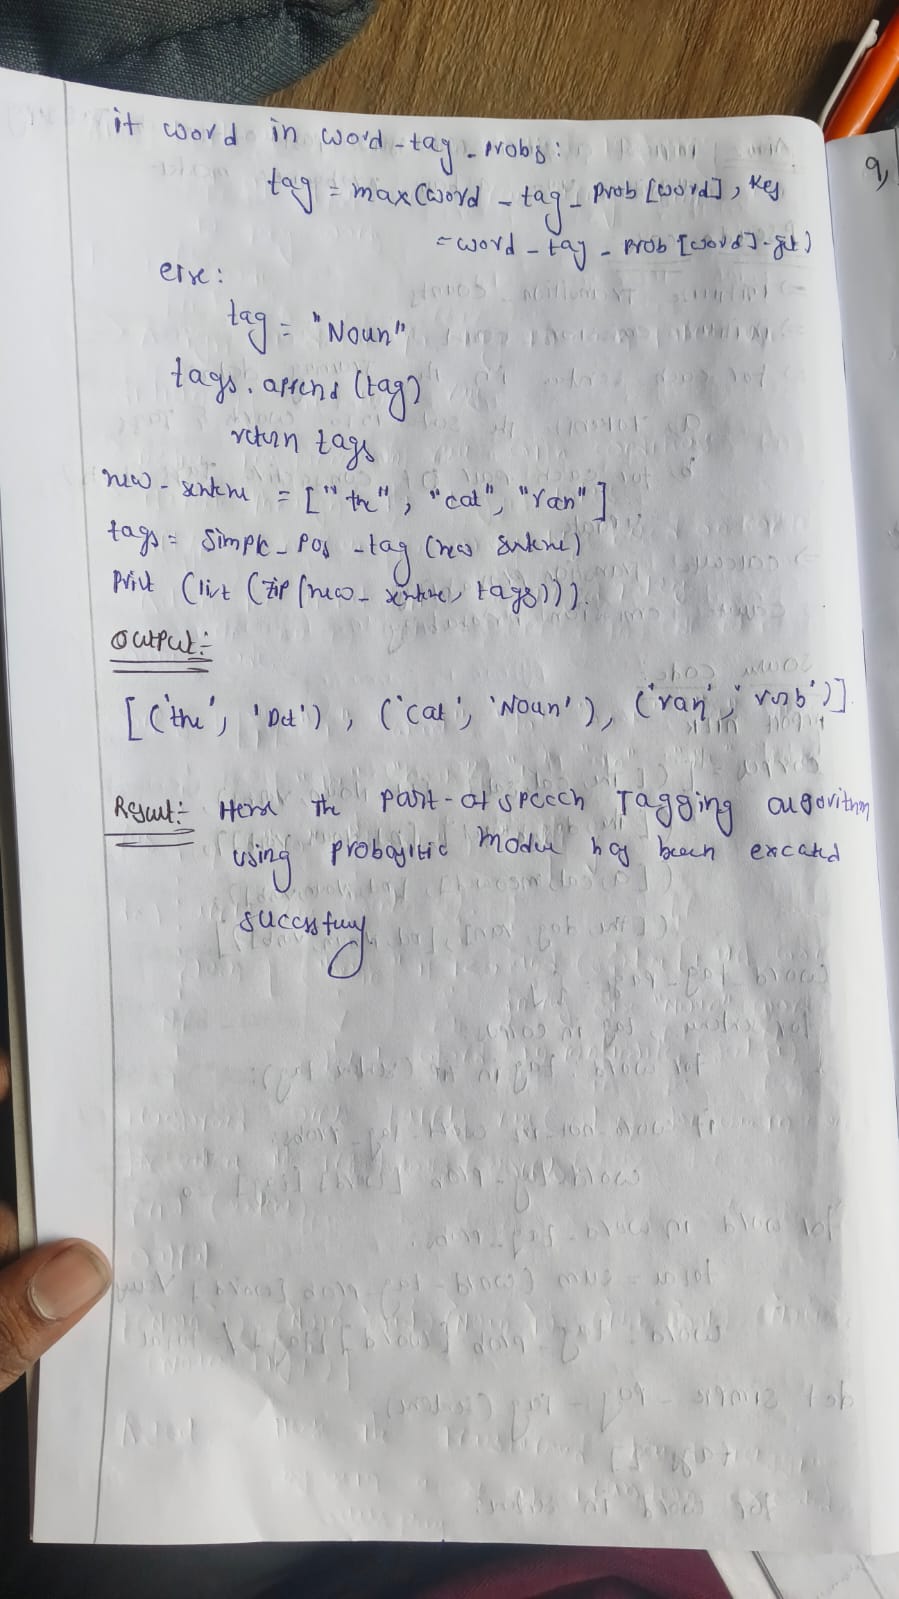 it word in word-tag-probs:
tag = max(word-tag-prob[word], key
=word-tag-prob[word]-get)
else:
tag = "Noun"
tags.append(tag)
return tags
new-sentence = ["the", "cat", "ran"]
tags = simple-pos-tag(new sentence)
print (list (zip(new-sentence, tags))).
output:-
[('the', 'Det'), ('cat', 'Noun'), ('ran', 'verb')].
Result:- Hence the part-of speech Tagging algorithm
using probabilitic model has been excated
successfuly
9,